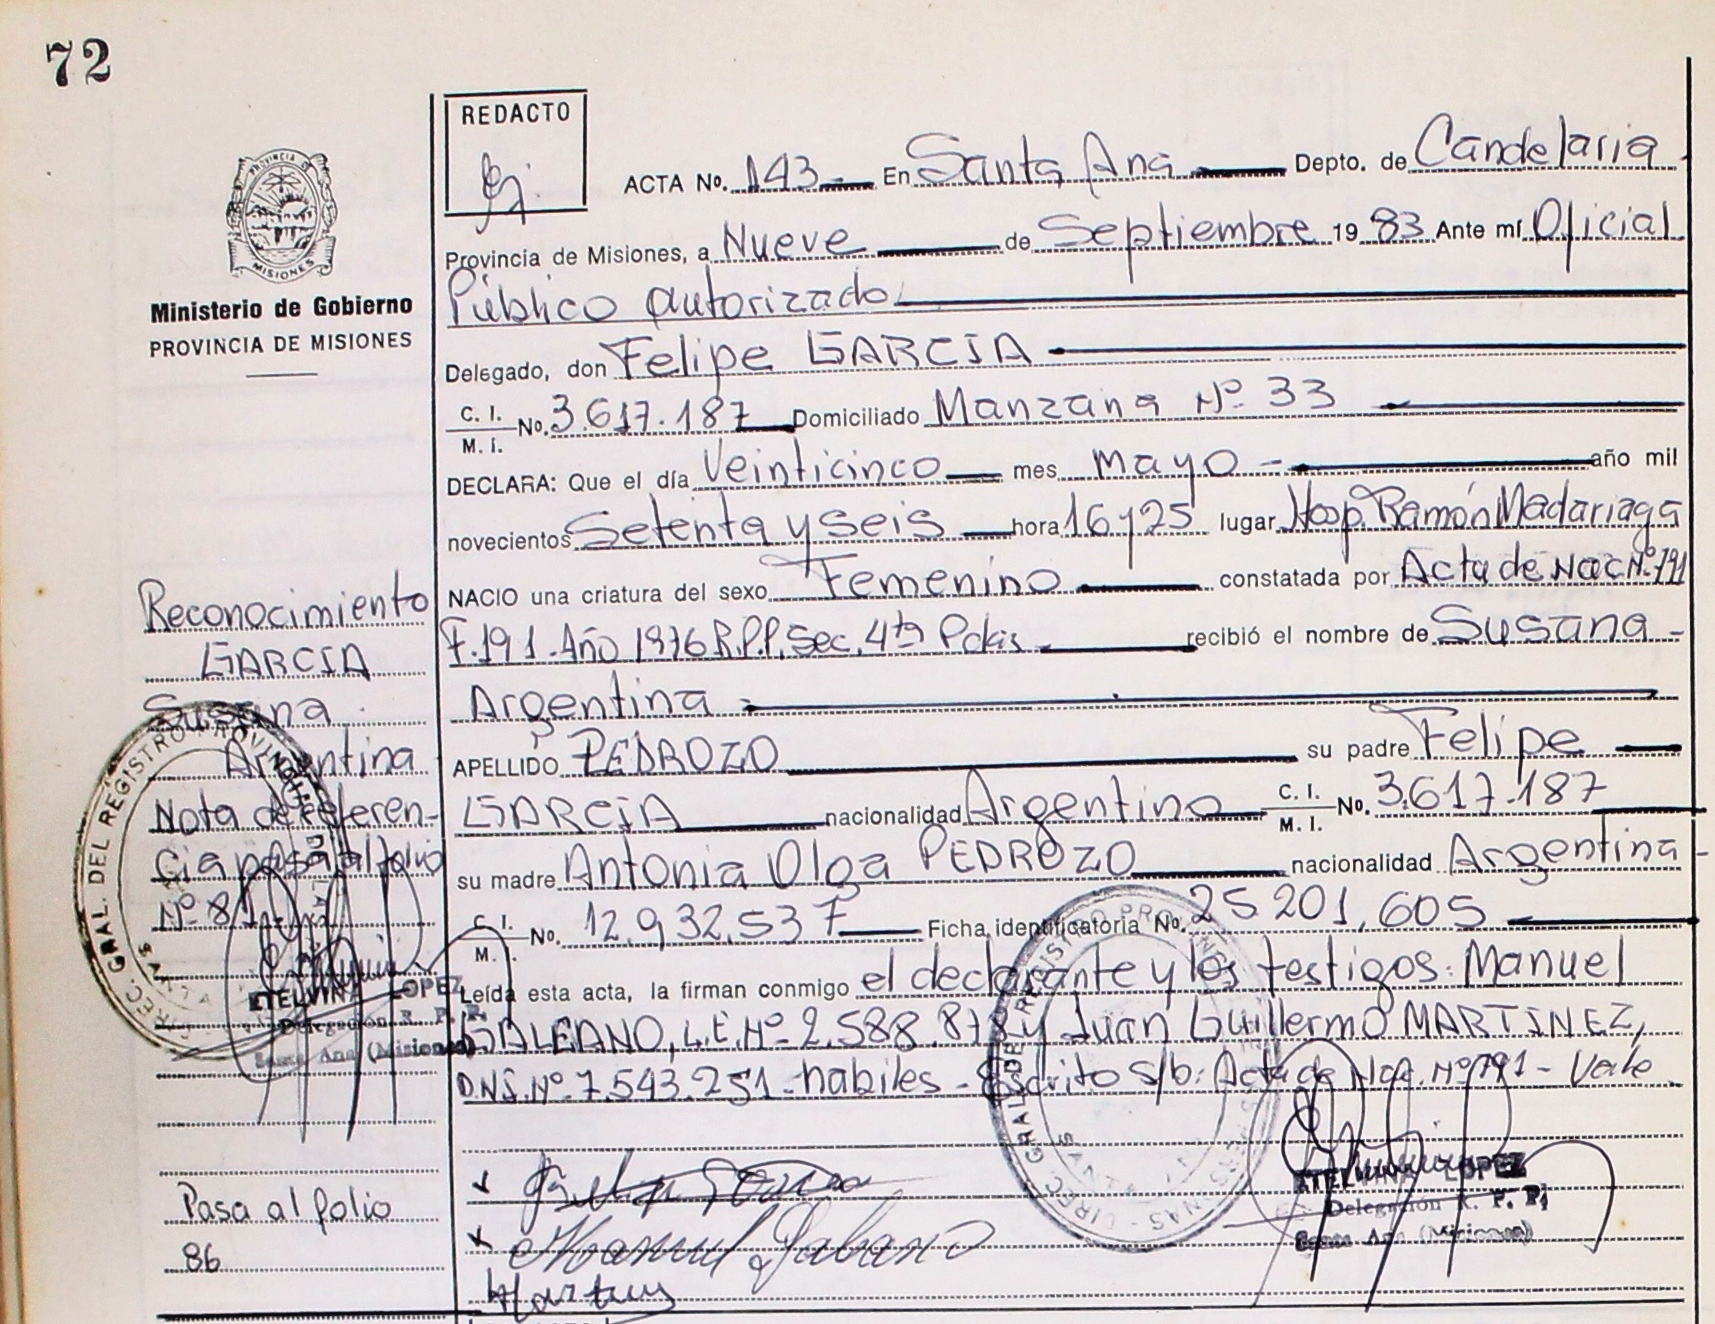 72
REDACTO
ACTA No. 143 En Santa Ana Depto. de Candelaria
Provincia de Misiones, a Nueve de Septiembre 19 83 Ante mí Oficial
Público autorizado
Delegado, don Felipe GARCIA
C. I. M. I. No. 3.617.187 Domiciliado Manzana Nº 33
DECLARA: Que el día Veinticinco mes mayo año mil
novecientos Setenta y seis hora 16 y 25 lugar Hosp. Ramón Madariaga
NACIO una criatura del sexo Femenino constatada por Acta de Nac Nº 191
F. 191 Año 1976 R.P.P. Sec. 4ta Pdas recibió el nombre de Susana
Argentina
APELLIDO PEDROZO su padre Felipe
GARCIA nacionalidad Argentino C. I. M. I. No. 3.617.187
su madre Antonia Olga PEDROZO nacionalidad Argentina
C. I. M. No. 12.932.537 Ficha identificatoria No. 25 201,605
Leída esta acta, la firman conmigo el declarante y los testigos: Manuel
GALEANO, L.E. Nº 2.588.878 y Juan Guillermo MARTINEZ,
D.N.I. Nº 7.543.251 - habiles - Escrito s/b: Acta de Nac. Nº 191 - Vale
PROVINCIA DE
MISIONES
Ministerio de Gobierno
PROVINCIA DE MISIONES
Reconocimiento
GARCIA
Susana
Argentina
Nota de referen-
cia pasa al folio
Nº 81
ETELVINA LOPEZ
Delegación R. P. P.
Santa Ana (Misiones)
Pasa al folio
86
DIREC. GRAL. DEL REGISTRO PROVINCIAL
DIREC. GRAL. DEL REGISTRO PROVINCIAL
ETELVINA LOPEZ
Delegación R. P. P.
Santa Ana (Misiones)